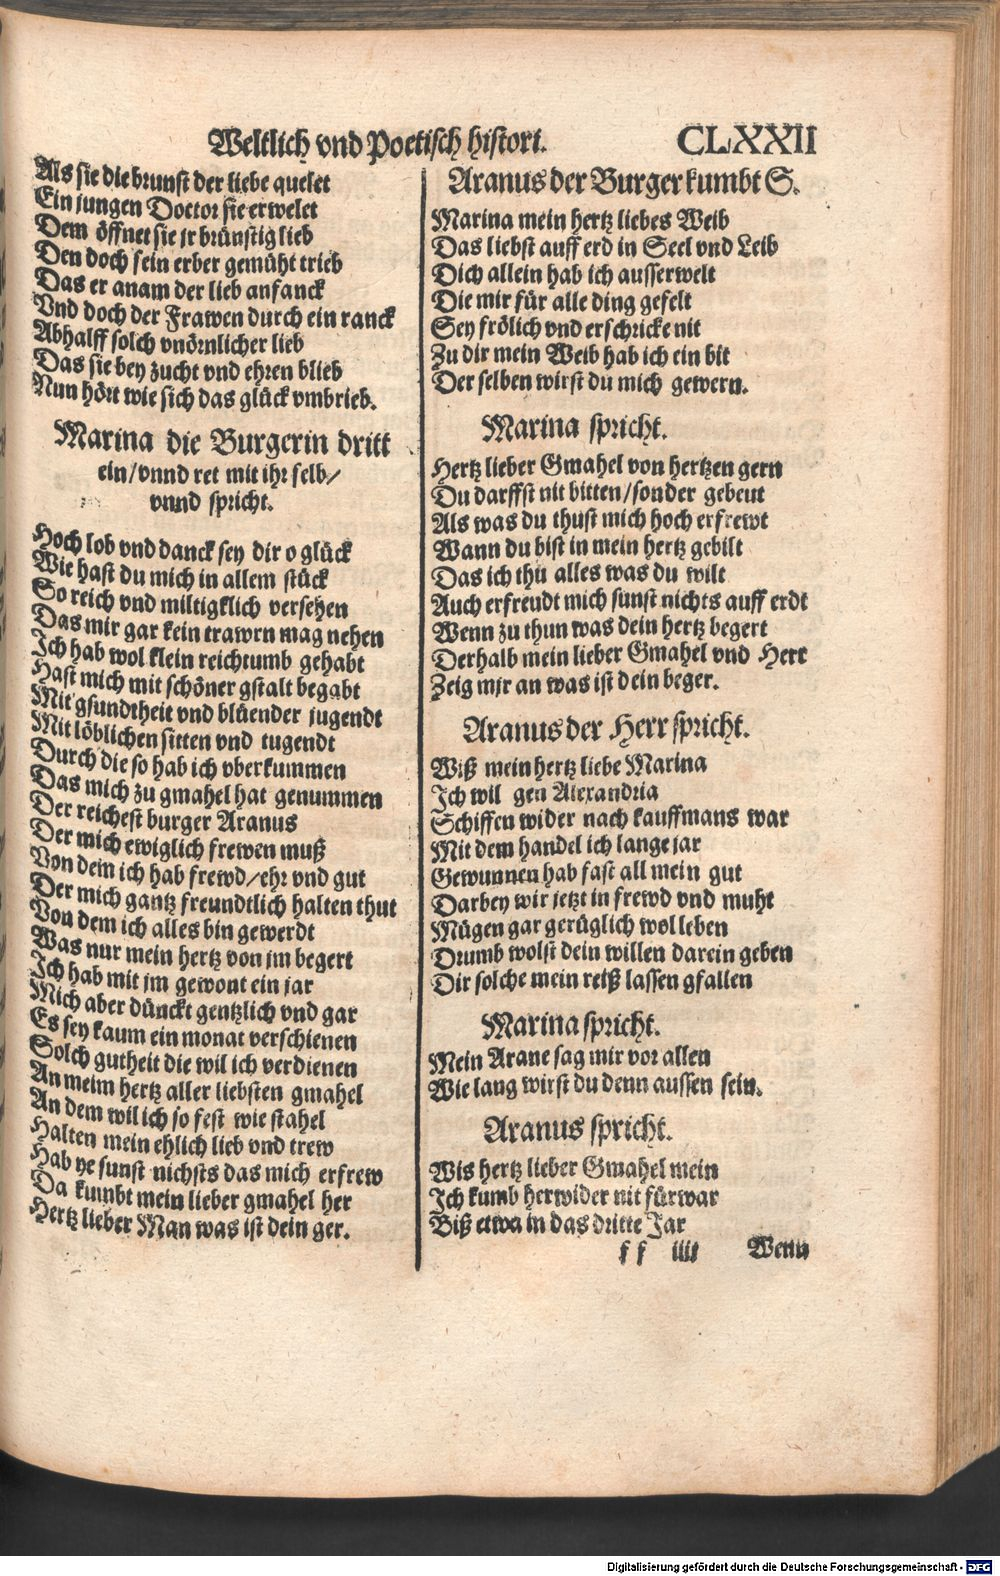 Weltlich vnd Poetisch histori. CLXXII
Als sie die brunst der liebe quelet
Ein jungen Doctor sie erwelet
Dem öffnet sie jr brünstig lieb
Den doch sein erber gemüht trieb
Das er anam der lieb anfanck
Vnd doch der Frawen durch ein ranck
Abhalff solch vnörnlicher lieb
Das sie bey zucht vnd ehren blieb
Nun hört wie sich das glück vmbrieb.
Marina die Burgerin dritt
ein/vnnd ret mit ihr selb/
vnnd spricht.
Hoch lob vnd danck sey dir o glück
Wie hast du mich in allem stück
So reich vnd miltigklich versehen
Das mir gar kein trawrn mag nehen
Ich hab wol klein reichtumb gehabt
Hast mich mit schöner gstalt begabt
Mit gsundtheit vnd blüender jugendt
Mit löblichen sitten vnd tugendt
Durch die so hab ich vberkummen
Das mich zu gmahel hat genummen
Der reichest burger Aranus
Der mich ewiglich frewen muß
Von dem ich hab frewd/ehr vnd gut
Der mich gantz freundtlich halten thut
Von dem ich alles bin gewerdt
Was nur mein hertz von jm begert
Ich hab mit jm gewont ein jar
Mich aber dünckt gentzlich vnd gar
Es sey kaum ein monat verschienen
Solch gutheit die wil ich verdienen
An meim hertz aller liebsten gmahel
An dem wil ich so fest wie stahel
Halten mein ehlich lieb vnd trew
Hab ye sunst nichsts das mich erfrew
Da kumbt mein lieber gmahel her
Hertz lieber Man was ist dein ger.
Aranus der Burger kumbt S.
Marina mein hertz liebes Weib
Das liebst auff erd in Seel vnd Leib
Dich allein hab ich ausserwelt
Die mir für alle ding gefelt
Sey frölich vnd erschricke nit
Zu dir mein Weib hab ich ein bit
Der selben wirst du mich gewern.
Marina spricht.
Hertz lieber Gmahel von hertzen gern
Du darffst nit bitten/sonder gebeut
Als was du thust mich hoch erfrewt
Wann du bist in mein hertz gebilt
Das ich thu alles was du wilt
Auch erfreudt mich sunst nichts auff erdt
Wenn zu thun was dein hertz begert
Derhalb mein lieber Gmahel vnd Herr
Zeig mir an was ist dein beger.
Aranus der Herr spricht.
Wiß mein hertz liebe Marina
Ich wil gen Alexandria
Schiffen wider nach kauffmans war
Mit dem handel ich lange jar
Gewunnen hab fast all mein gut
Darbey wir jetzt in frewd vnd muht
Mügen gar gerüglich wol leben
Drumb wolst dein willen darein geben
Dir solche mein reiß lassen gfallen
Marina spricht.
Mein Arane sag mir vor allen
Wie lang wirst du denn aussen sein.
Aranus spricht.
Wis hertz lieber Gmahel mein
Ich kumb herwider nit fürwar
Biß etwa in das dritte Jar
f f iiij Wenn
Digitalisierung gefördert durch die Deutsche Forschungsgemeinschaft - DFG